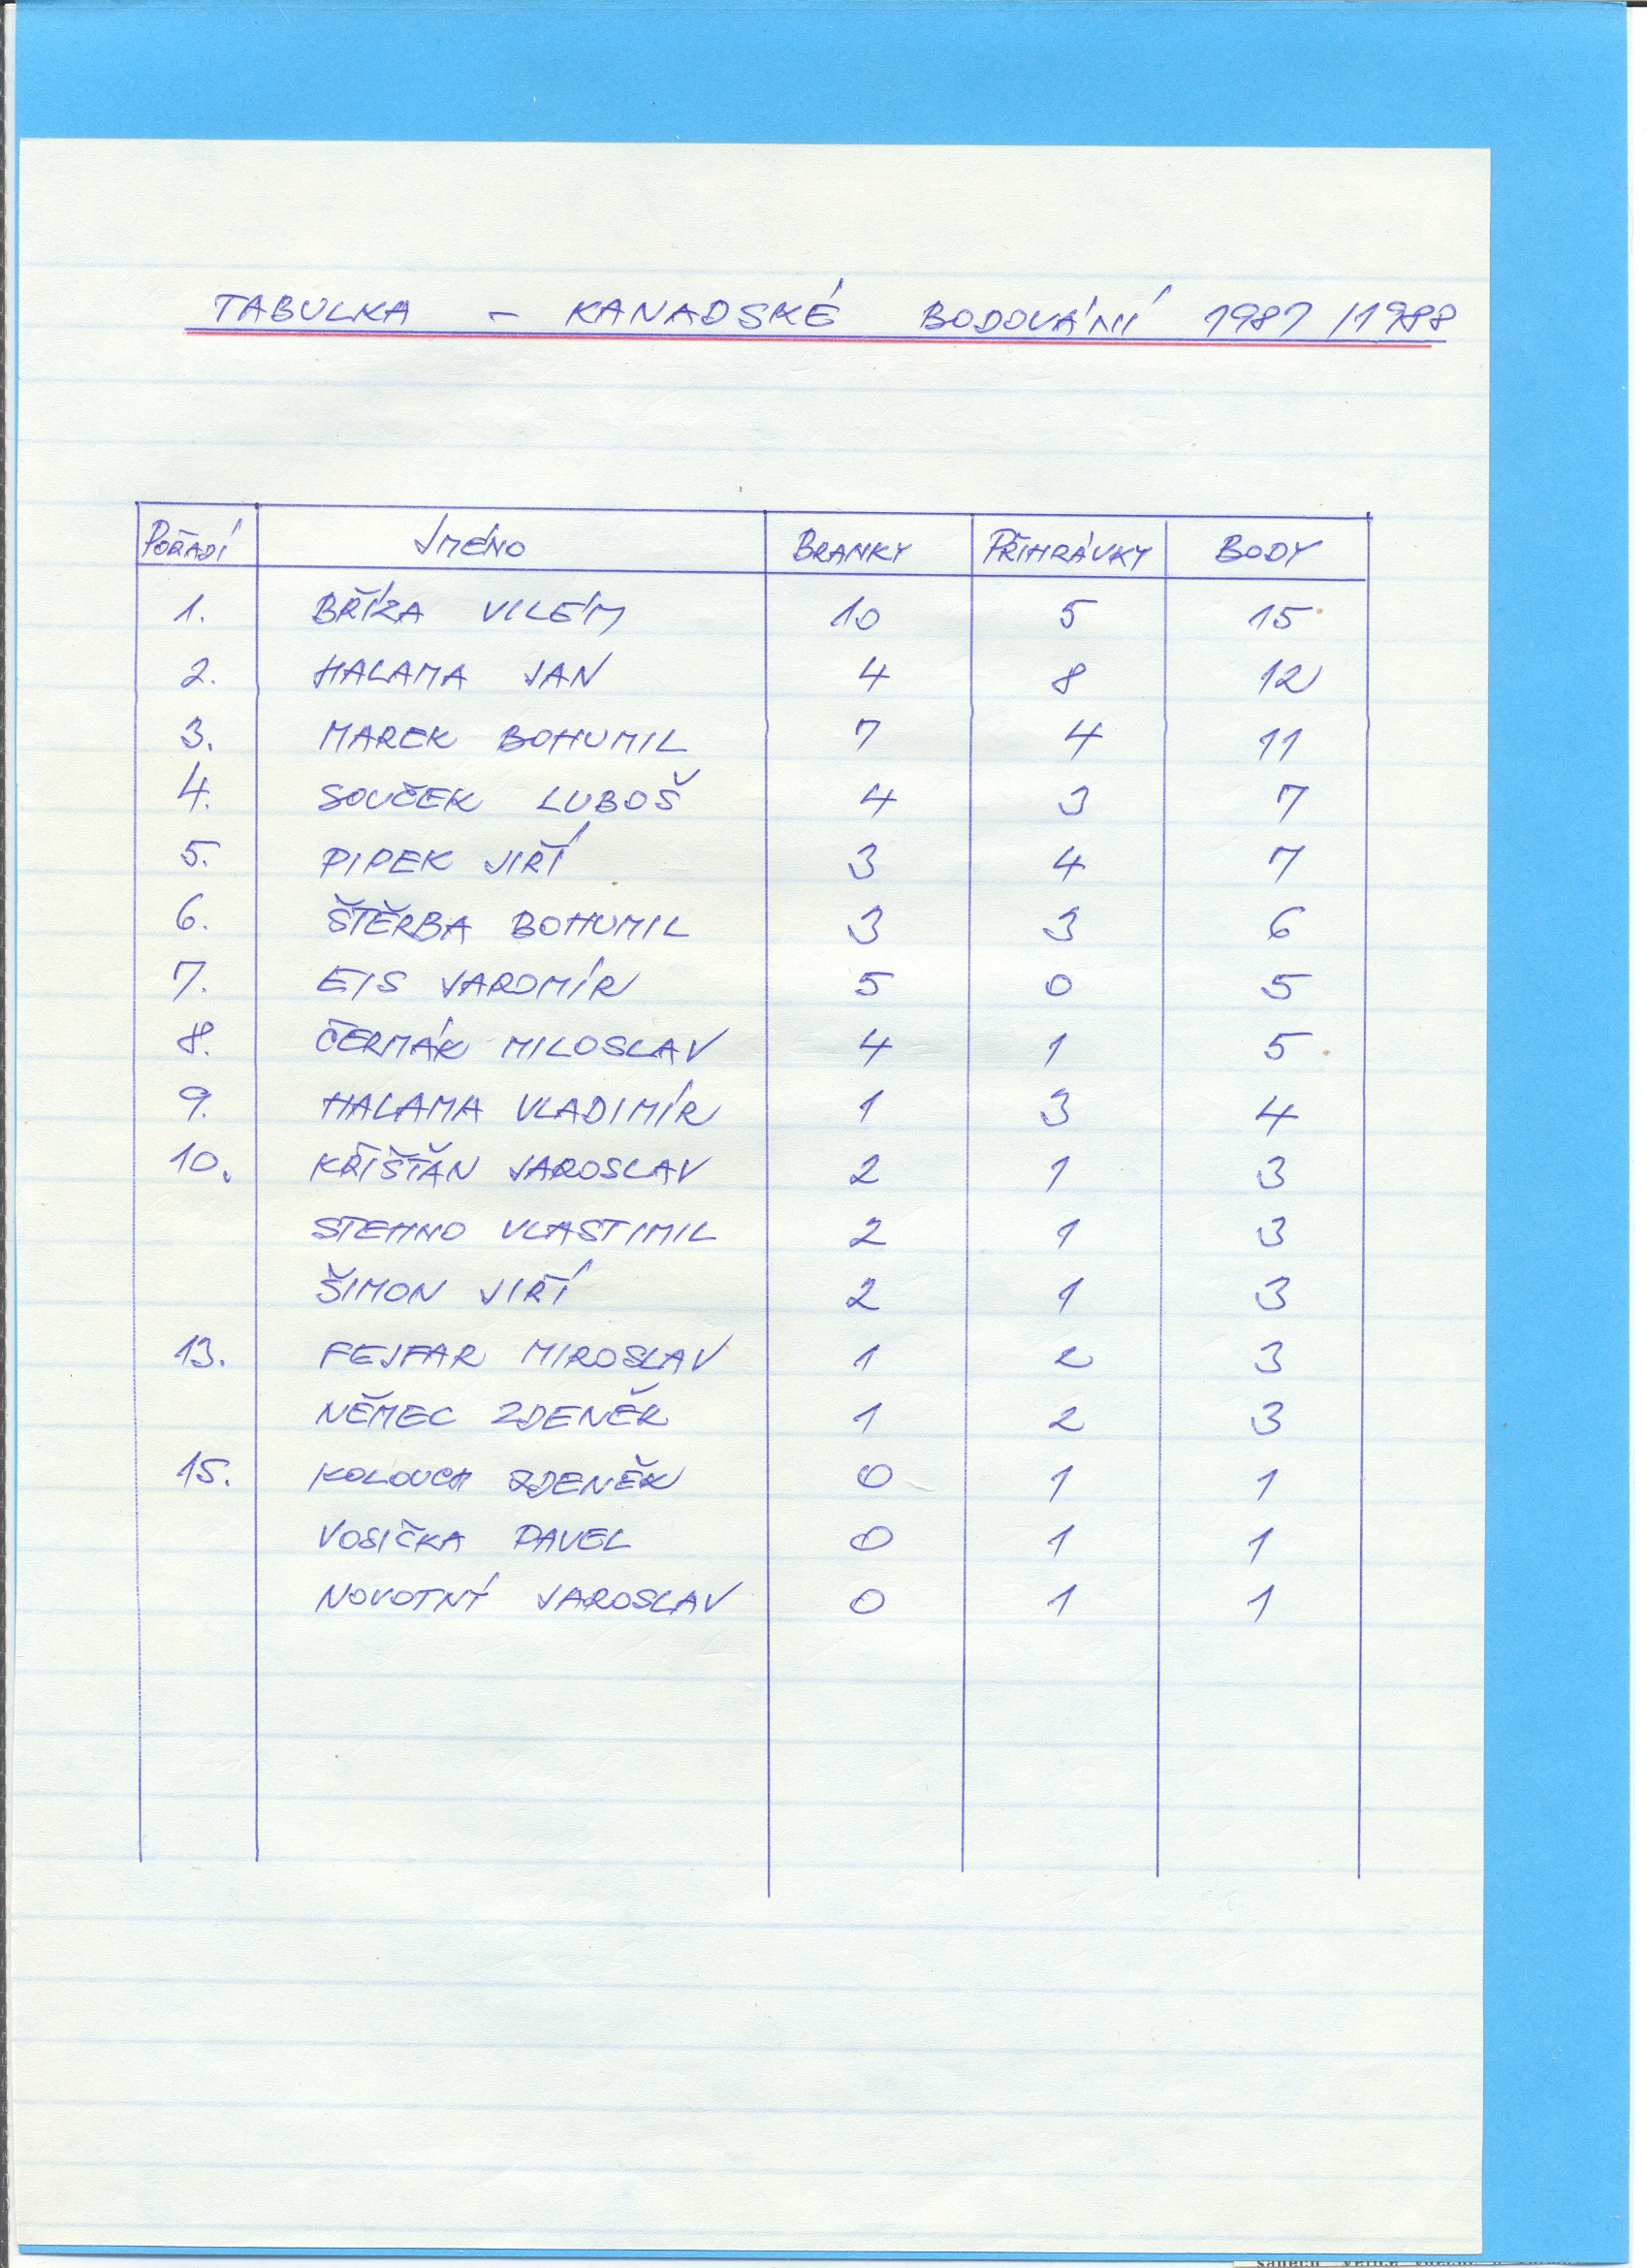 TABULKA - KANADSKÉ BODOVÁNÍ 1987/1988
POŘADÍ JMÉNO BRANKY PŘIHRÁVKY BODY
1. BŘÍZA VILÉM 10 5 15
2. HALAMA JAN 4 8 12
3. MAREK BOHUMIL 7 4 11
4. SOUČEK LUBOŠ 4 3 7
5. PIPEK JIŘÍ 3 4 7
6. ŠTĚRBA BOHUMIL 3 3 6
7. EIS JAROMÍR 5 0 5
8. ČERMÁK MILOSLAV 4 1 5
9. HALAMA VLADIMÍR 1 3 4
10. KŘIŠŤÁN JAROSLAV 2 1 3
STEHNO VLASTIMIL 2 1 3
ŠIMON JIŘÍ 2 1 3
13. FEJFAR MIROSLAV 1 2 3
NĚMEC ZDENĚK 1 2 3
15. KOLOUCH ZDENĚK 0 1 1
VOSIČKA PAVEL 0 1 1
NOVOTNÝ JAROSLAV 0 1 1